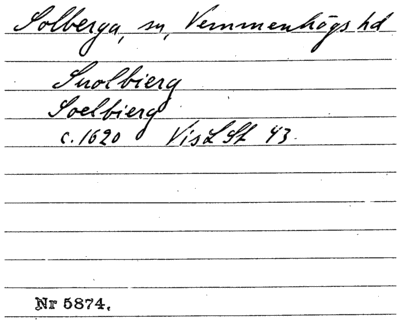 Solberga, sn, Vemmenhögs hd
Suolbierg
Soelbierg
c. 1620 VisLSt 43.
Nr 5874.